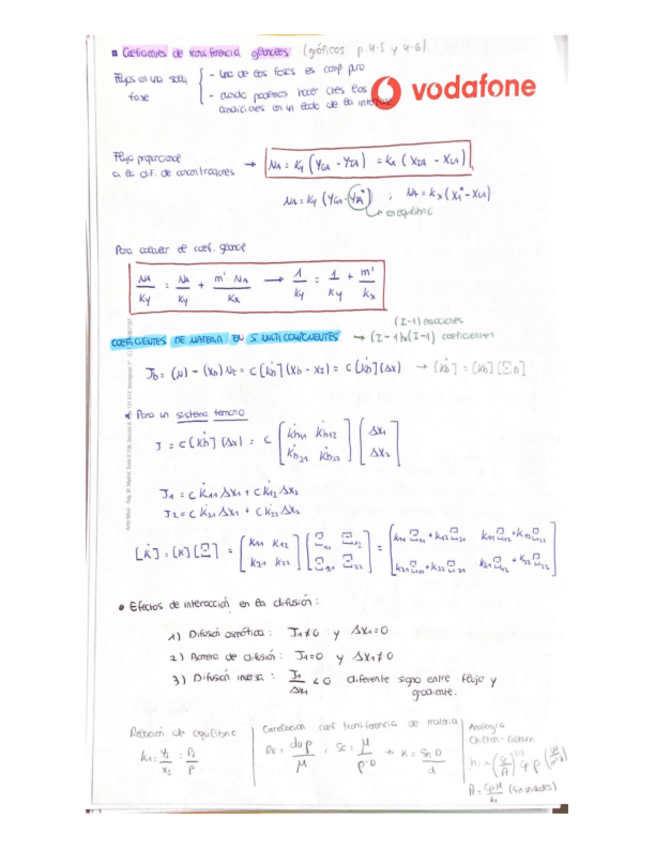 ■ Coeficientes de transferencia globales (gráficos p 4-5 y 4-6)
Flujos en una sola fase { - Uno de las fases es comp puro
- cuando podemos hacer ctes las condiciones en un lado de la interfase
vodafone
Flujo proporcional a la dif. de concentraciones → N_A = K_y (Y_GA - Y_IA) = k_x (X_IA - X_LA)
N_A = K_y (Y_GA - Y_A*) ; N_A = K_x (X_A* - X_LA)
↳ en equilibrio
Para calcular el coef. global
N_A/K_y = N_A/k_y + m' N_A/k_x → 1/K_y = 1/k_y + m'/k_x
(I-1) ecuaciones
COEFICIENTES DE MATERIA EN S. MULTICOMPONENTES → (I-1)x(I-1) coeficientes
J_b = (N) - (X_b) N_t = C [k_b] (X_b - X_I) = C [k_b] (ΔX) → [k_b] = [k_b] [Ξ_b]
* Para un sistema ternario
J = C [k_b] (ΔX) = C [k_b11 k_b12] [ΔX_1]
[k_b21 k_b22] [ΔX_2]
J_1 = C k_11 ΔX_1 + C k_12 ΔX_2
J_2 = C k_21 ΔX_1 + C k_22 ΔX_2
[k] = [k] [Ξ] = [k_11 k_12] [Ξ_11 Ξ_12] = [k_11 Ξ_11 + k_12 Ξ_21 k_11 Ξ_12 + k_12 Ξ_22]
[k_21 k_22] [Ξ_21 Ξ_22] [k_21 Ξ_11 + k_22 Ξ_21 k_21 Ξ_12 + k_22 Ξ_22]
• Efectos de interacción en la difusión:
1) Difusión osmótica: J_1 ≠ 0 y ΔX_1 = 0
2) Barrera de difusión: J_1 = 0 y ΔX_1 ≠ 0
3) Difusión inversa: J_1/ΔX_1 < 0 diferente signo entre flujo y gradiente.
Relación de equilibrio
Correlación coef transferencia de materia
Analogía
Chilton-Colburn
Re = duρ/μ ; Sc = μ/ρ·D → k = Sh D/d
Pr = Cp μ/k (sin unidades)